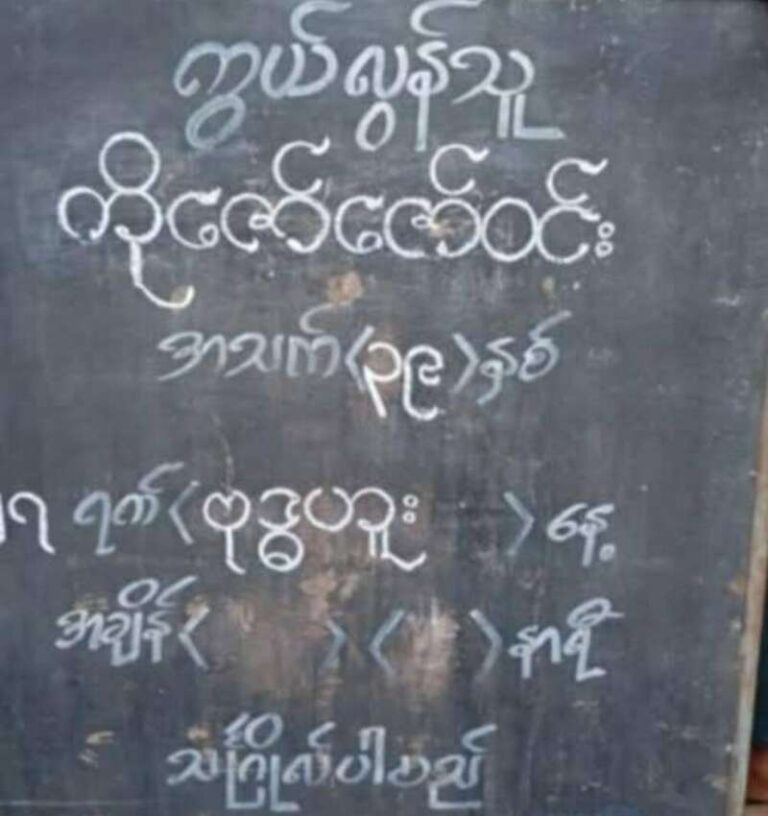 ကွယ်လွန်သူ
ကိုဇော်ဇော်ဝင်း
အသက်(၃၉)နှစ်
၁၇ ရက်(ဗုဒ္ဓဟူး )နေ့
အချိန်( ) ( )နာရီ
သင်္ဂြိုလ်ပါမည်